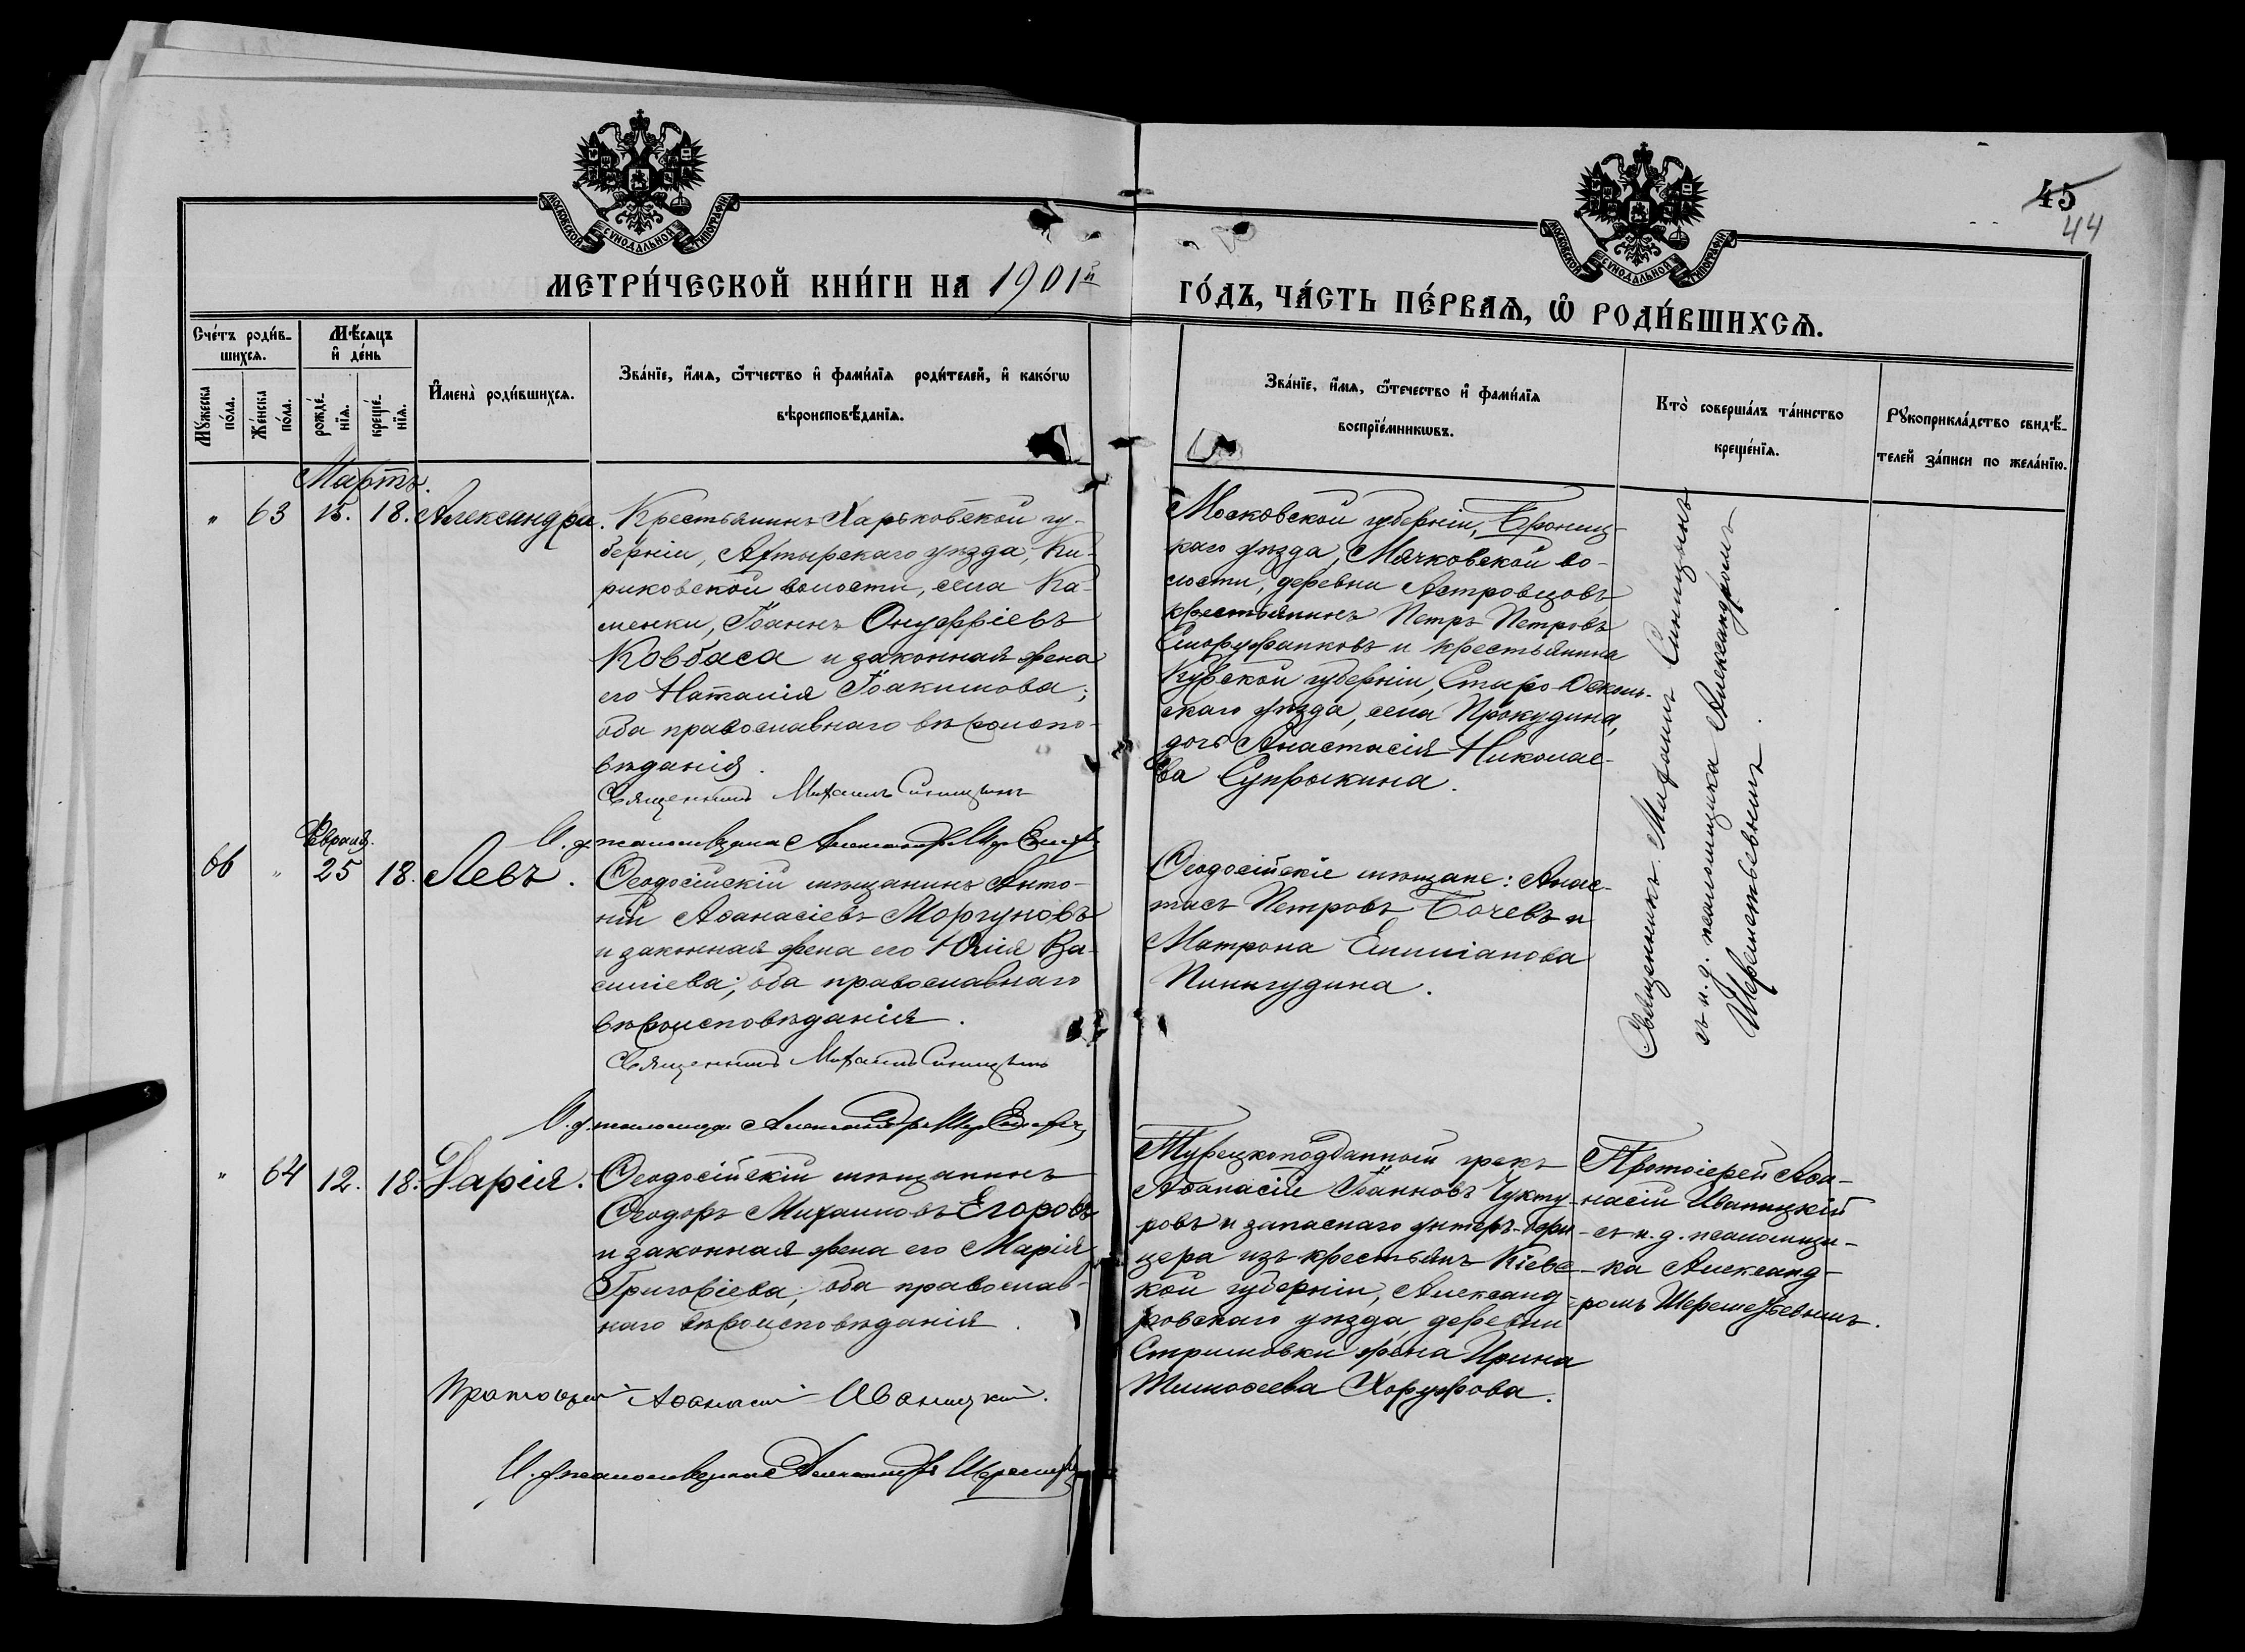 МОСКОВСКОЙ СѴНОДАЛЬНОЙ ТИПОГРАФІИ
МОСКОВСКОЙ СѴНОДАЛЬНОЙ ТИПОГРАФІИ
45
44
МЕТРИ́ЧЕСКОЙ КНИ́ГИ НА 1901й
ГО́ДЪ, ЧА́СТЬ ПЕ́РВАѦ, Ѡ҆ РОДИ́ВШИХСѦ.
Сче́тъ роди́в-
шихсѧ.
Мѣ́сѧцъ
и҆ де́нь
Мꙋ́жеска
по́ла.
Же́нска
по́ла.
рожде́-
нїѧ.
креще́-
нїѧ.
И҆мена̀ роди́вшихсѧ.
Зва́нїе, и҆́мѧ, ѻ҆́тчество и҆ фами́лїѧ роди́телей, и҆ како́гѡ
вѣроисповѣ́данїѧ.
Зва́нїе, и҆́мѧ, ѻ҆́течество и҆ фами́лїѧ
воспрїе́мникѡвъ.
Кто̀ соверша́лъ та́инство
креще́нїѧ.
Рꙋкоприкла́дство свидѣ́-
телей за́писи по жела́нїю.
Мартъ.
" 63 15. 18. Александра.
Крестьянинъ Харьковской гу-
берніи, Ахтырскаго уѣзда, Ки-
риковской волости, села Ка-
менки, Іоаннъ Онуфріевъ
Ковбаса и законная жена
его Наталія Іоакимова;
оба православнаго вѣроиспо-
вѣданія.
Священникъ Михаилъ Синицынъ
И. д. псаломщика Александръ
Московской губерніи, Бронниц-
каго уѣзда, Мячковской во-
лости, деревни Астровцовъ
крестьянинъ Петръ Петровъ
и крестьянина
Курской губерніи, Старо-Осколь-
скаго уѣзда, села Прокудина,
дочь Анастасія Николае-
ва Супрыкина.
Священникъ Михаилъ Синицынъ
съ и. д. псаломщика Александромъ
Шереметьевымъ.
Февраля.
66 " 25 18. Левъ.
Ѳеодосійскій мѣщанинъ Анто-
ній Аѳанасіевъ Моргуновъ
и законная жена его Юлія Ва-
силіева; оба православнаго
вѣроисповѣданія.
Священникъ Михаилъ Синицынъ
И. д. псаломщика Александръ
Ѳеодосійскіе мѣщане: Анас-
тасъ Петровъ Бочевъ и
Матрона Емиліанова
Пинигудина.
" 64 12. 18. Дарія.
Ѳеодосійскій мѣщанинъ
Ѳеодоръ Михаиловъ Егоровъ
и законная жена его Марія
Григоріева; оба православ-
наго вѣроисповѣданія.
Протоіерей Аѳанасій Иваницкій.
И. д. псаломщика Александръ
Турецкоподданный грекъ
Аѳанасій Іоанновъ Чукту-
ровъ и запаснаго унтеръ-офи-
цера изъ крестьянъ Кіевс-
кой губерніи, Александ-
ровскаго уѣзда, деревни
Стримовки жена Ирина
Тимоѳеева Хоружова.
Протоіерей Аѳа-
насій Иваницкій
съ и. д. псаломщи-
ка Александ-
ромъ Шереметьевымъ.